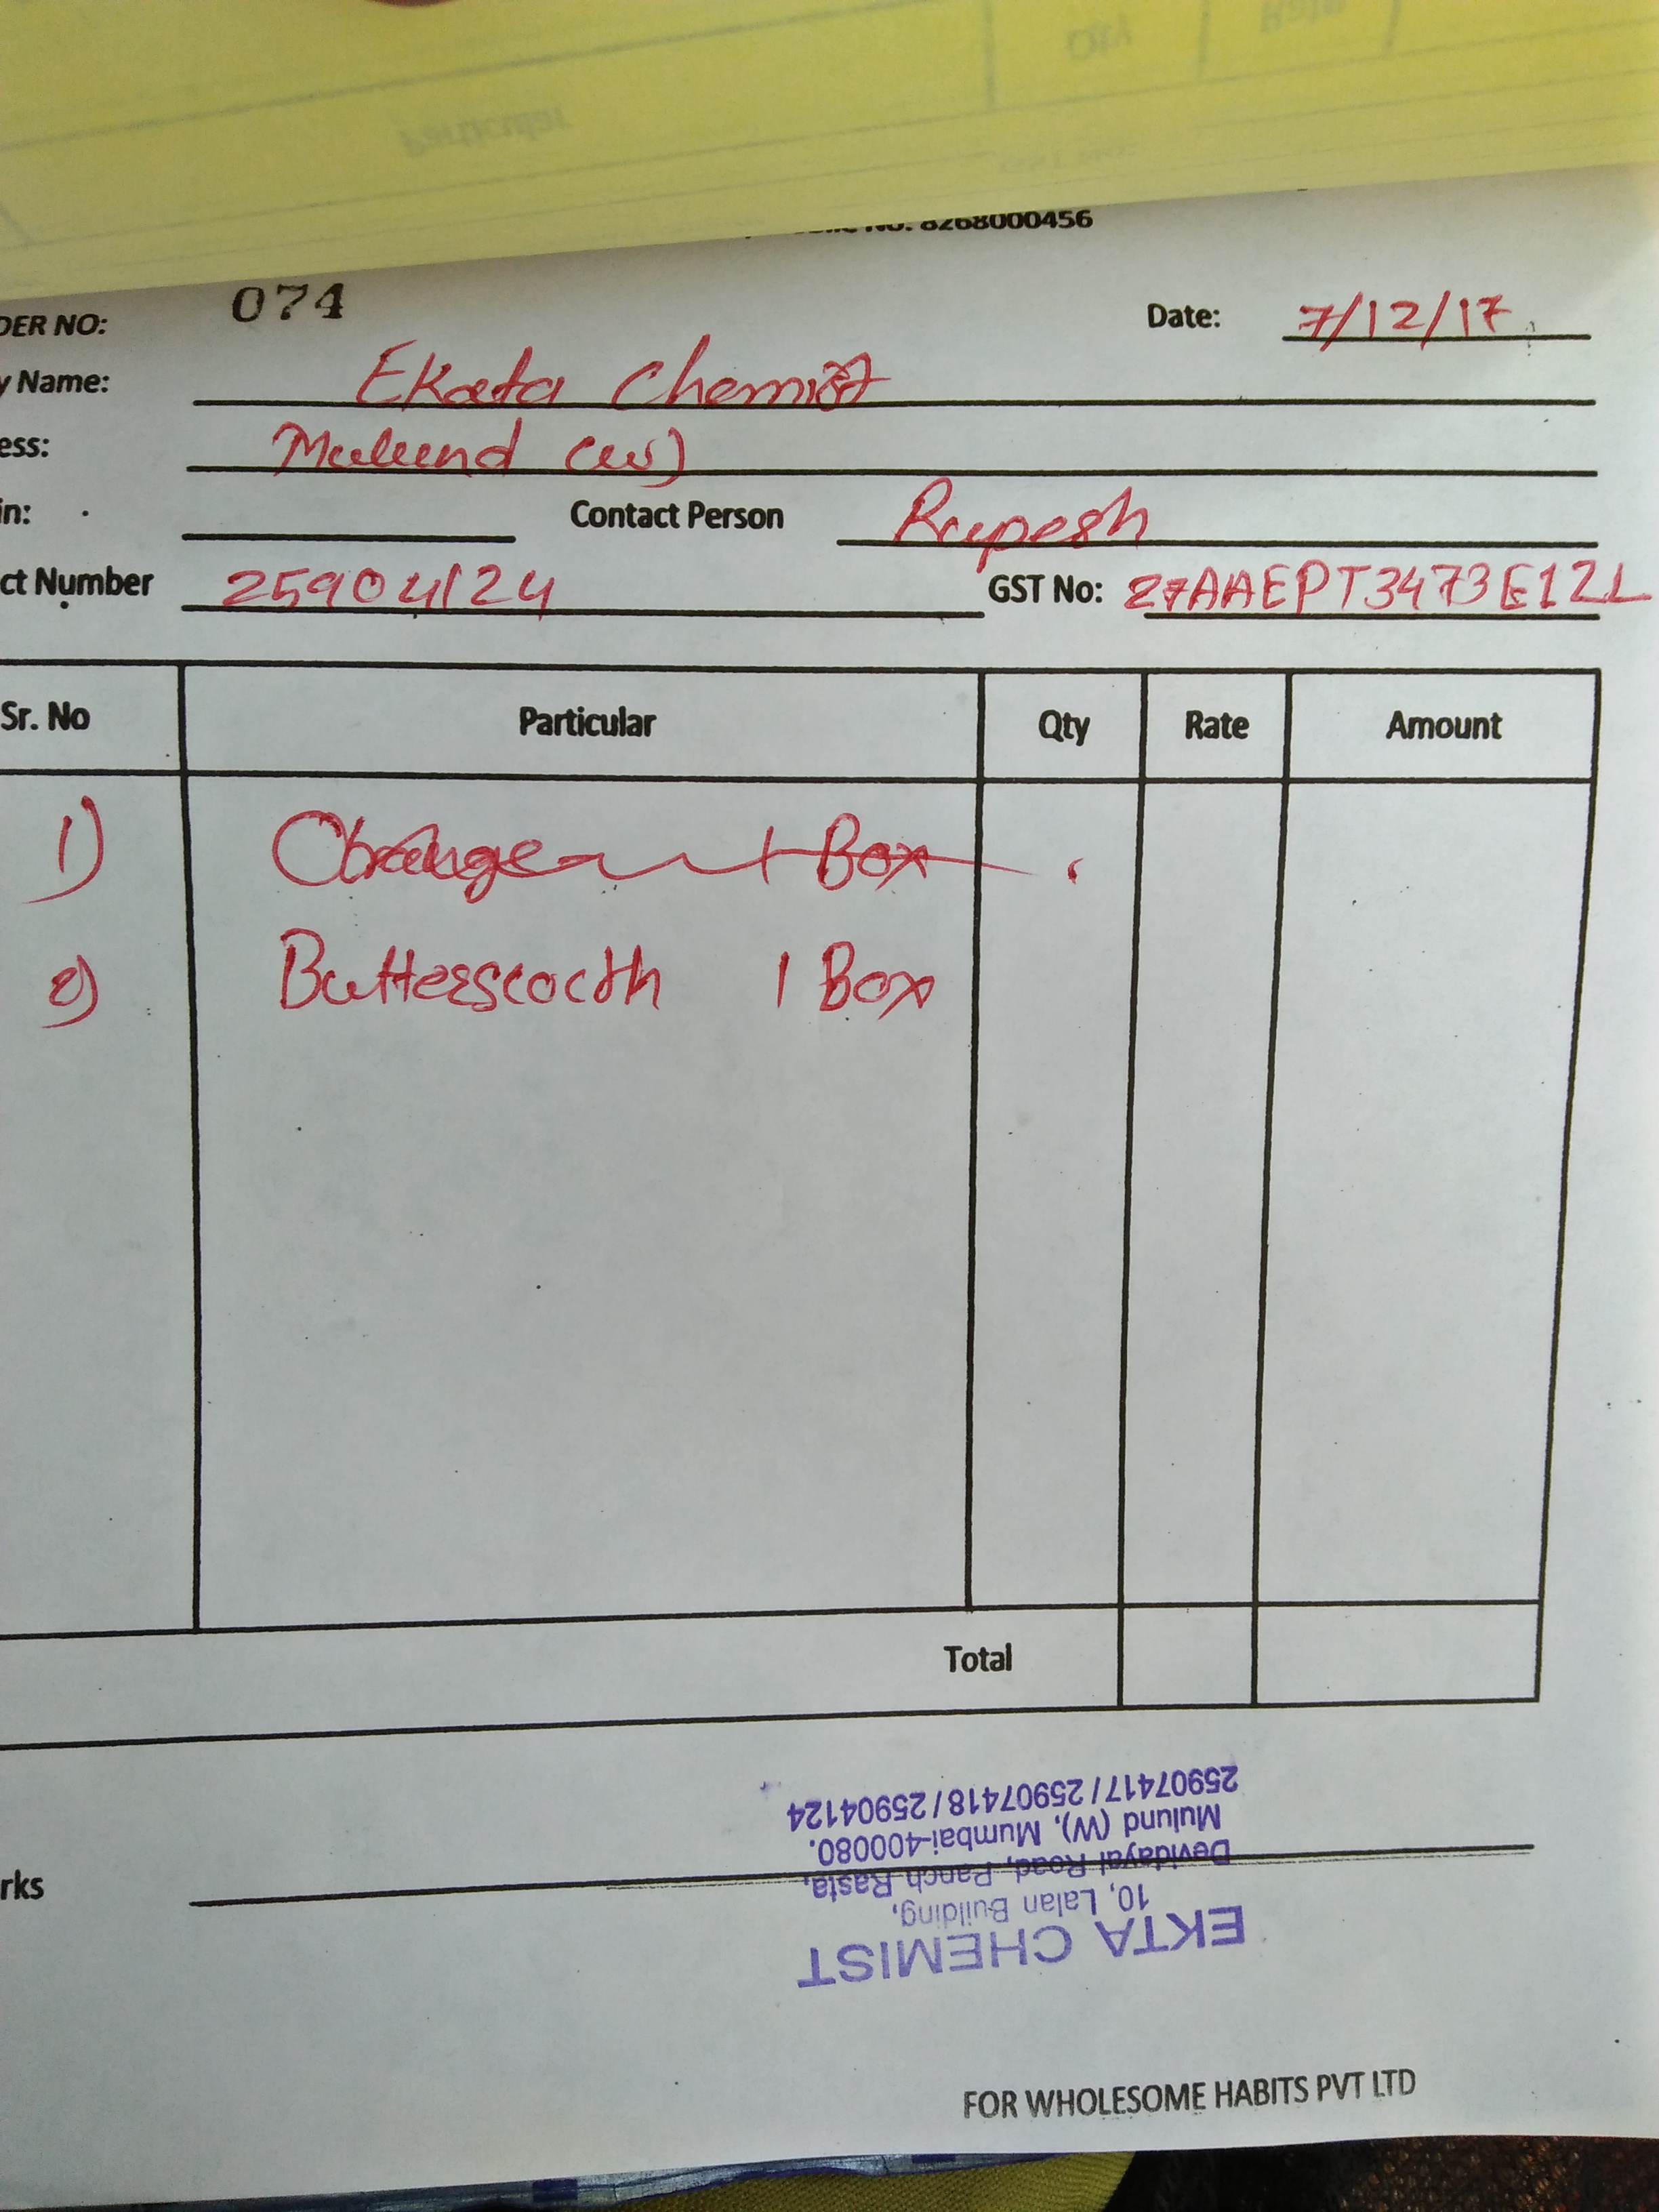 8268000456
DER NO: 074 Date: 7/12/17
y Name: Ekata Chemist
ess: Mulund (w)
in: Contact Person Rupesh
ct Number 25904124 GST No: 27AAEPT3473E1ZL
Sr. No Particular Qty Rate Amount
1) Orange 1 Box
2) Butterscocth 1 Box
Total
rks
EKTA CHEMIST
10, Lalan Building,
Devidayal Road, Panch Rasta,
Mulund (W), Mumbai-400080.
25907417 / 25907418 / 25904124
FOR WHOLESOME HABITS PVT LTD